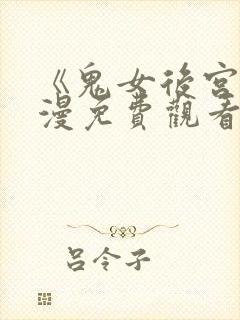 《鬼女後宮
漫免費觀看
呂令子